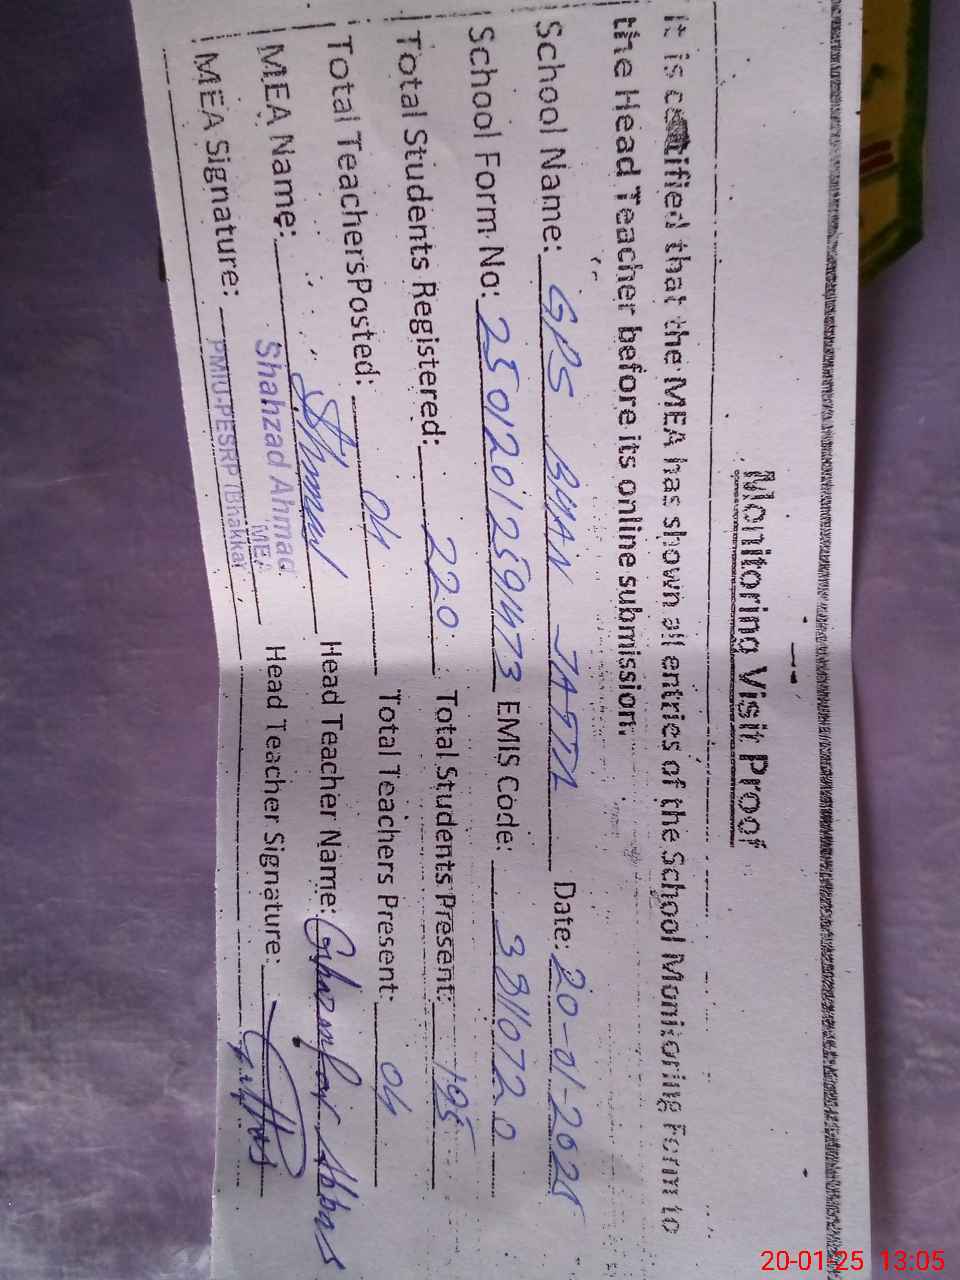 Monitoring Visit Proof
It is certified that the MEA has shown all entries of the School Monitoring Form to
the Head Teacher before its online submission.
School Name: GPS BHAN JATTA Date: 20-01-2025
School Form No: 2501201259473 EMIS Code: 33110720
Total Students Registered: 220 Total Students Present: 195
Total TeachersPosted: 04 Total Teachers Present: 04
MEA Name: Head Teacher Name: Ghazanfar Abbas
Shahzad Ahmad
MEA
MEA Signature: Head Teacher Signature:
PMIU-PESRP (Bhakkar
20-01-25 13:05